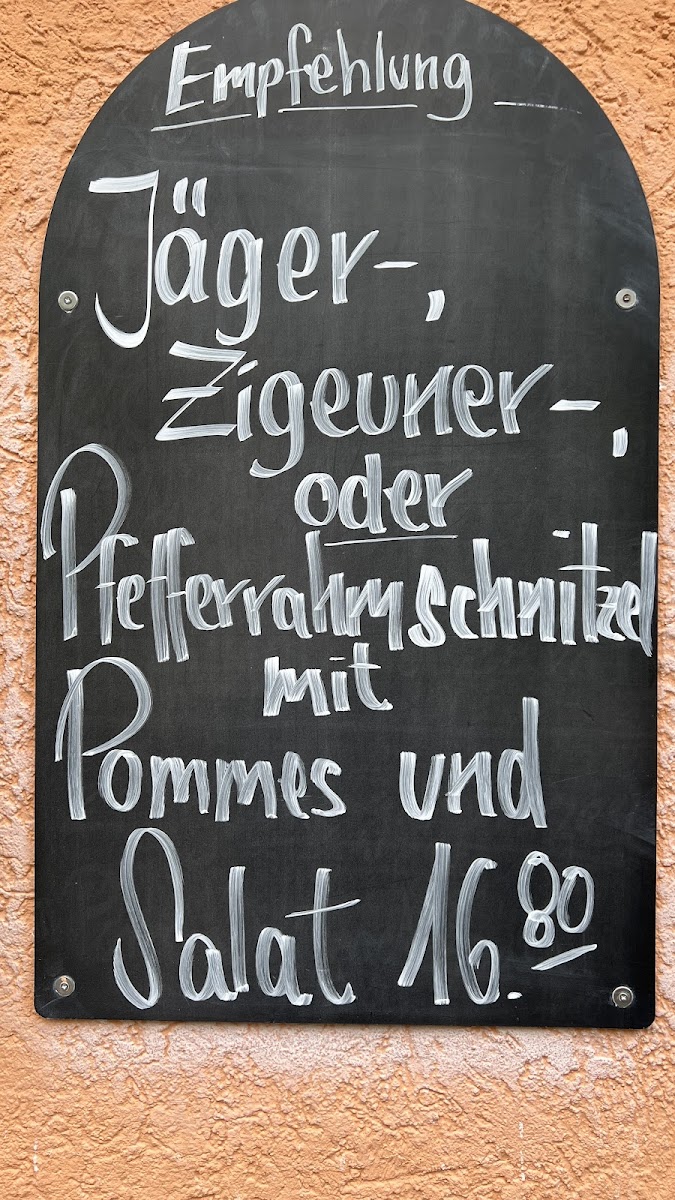 Empfehlung
Jäger-,
Zigeuner-,
oder
Pfefferrahmschnitzel
mit
Pommes und
Salat 16.80